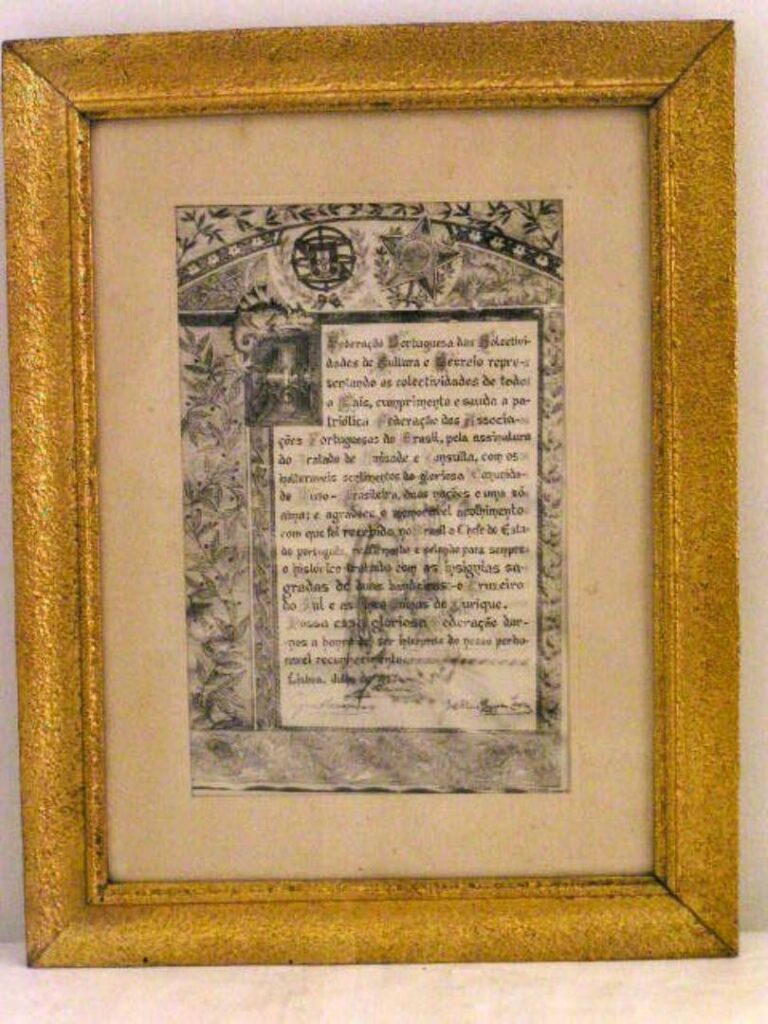 Federação Portuguesa das Colectivi-
dades de Cultura e Recreio repre-
sentando as colectividades de todo
o País, cumprimenta e saúda a pa-
triótica Federação das Associa-
ções Portuguesas do Brasil, pela assinatura
do Tratado de Amizade e Consulta, com os
sentimentos da gloriosa Comunida-
de Luso-Brasileira, duas nações e uma só
alma; e agradece o memorável acolhimento
com que foi recebido no Brasil o Chefe do Esta-
do português, e selando para sempre
o histórico tratado com as insígnias sa-
gradas de duas bandeiras - o Cruzeiro
do Sul e as Cinco Quinas de Ourique.
Possa essa gloriosa Federação dar-
nos a honra de ser intérprete do nosso perdu-
rável reconhecimento
Lisboa, Julho de